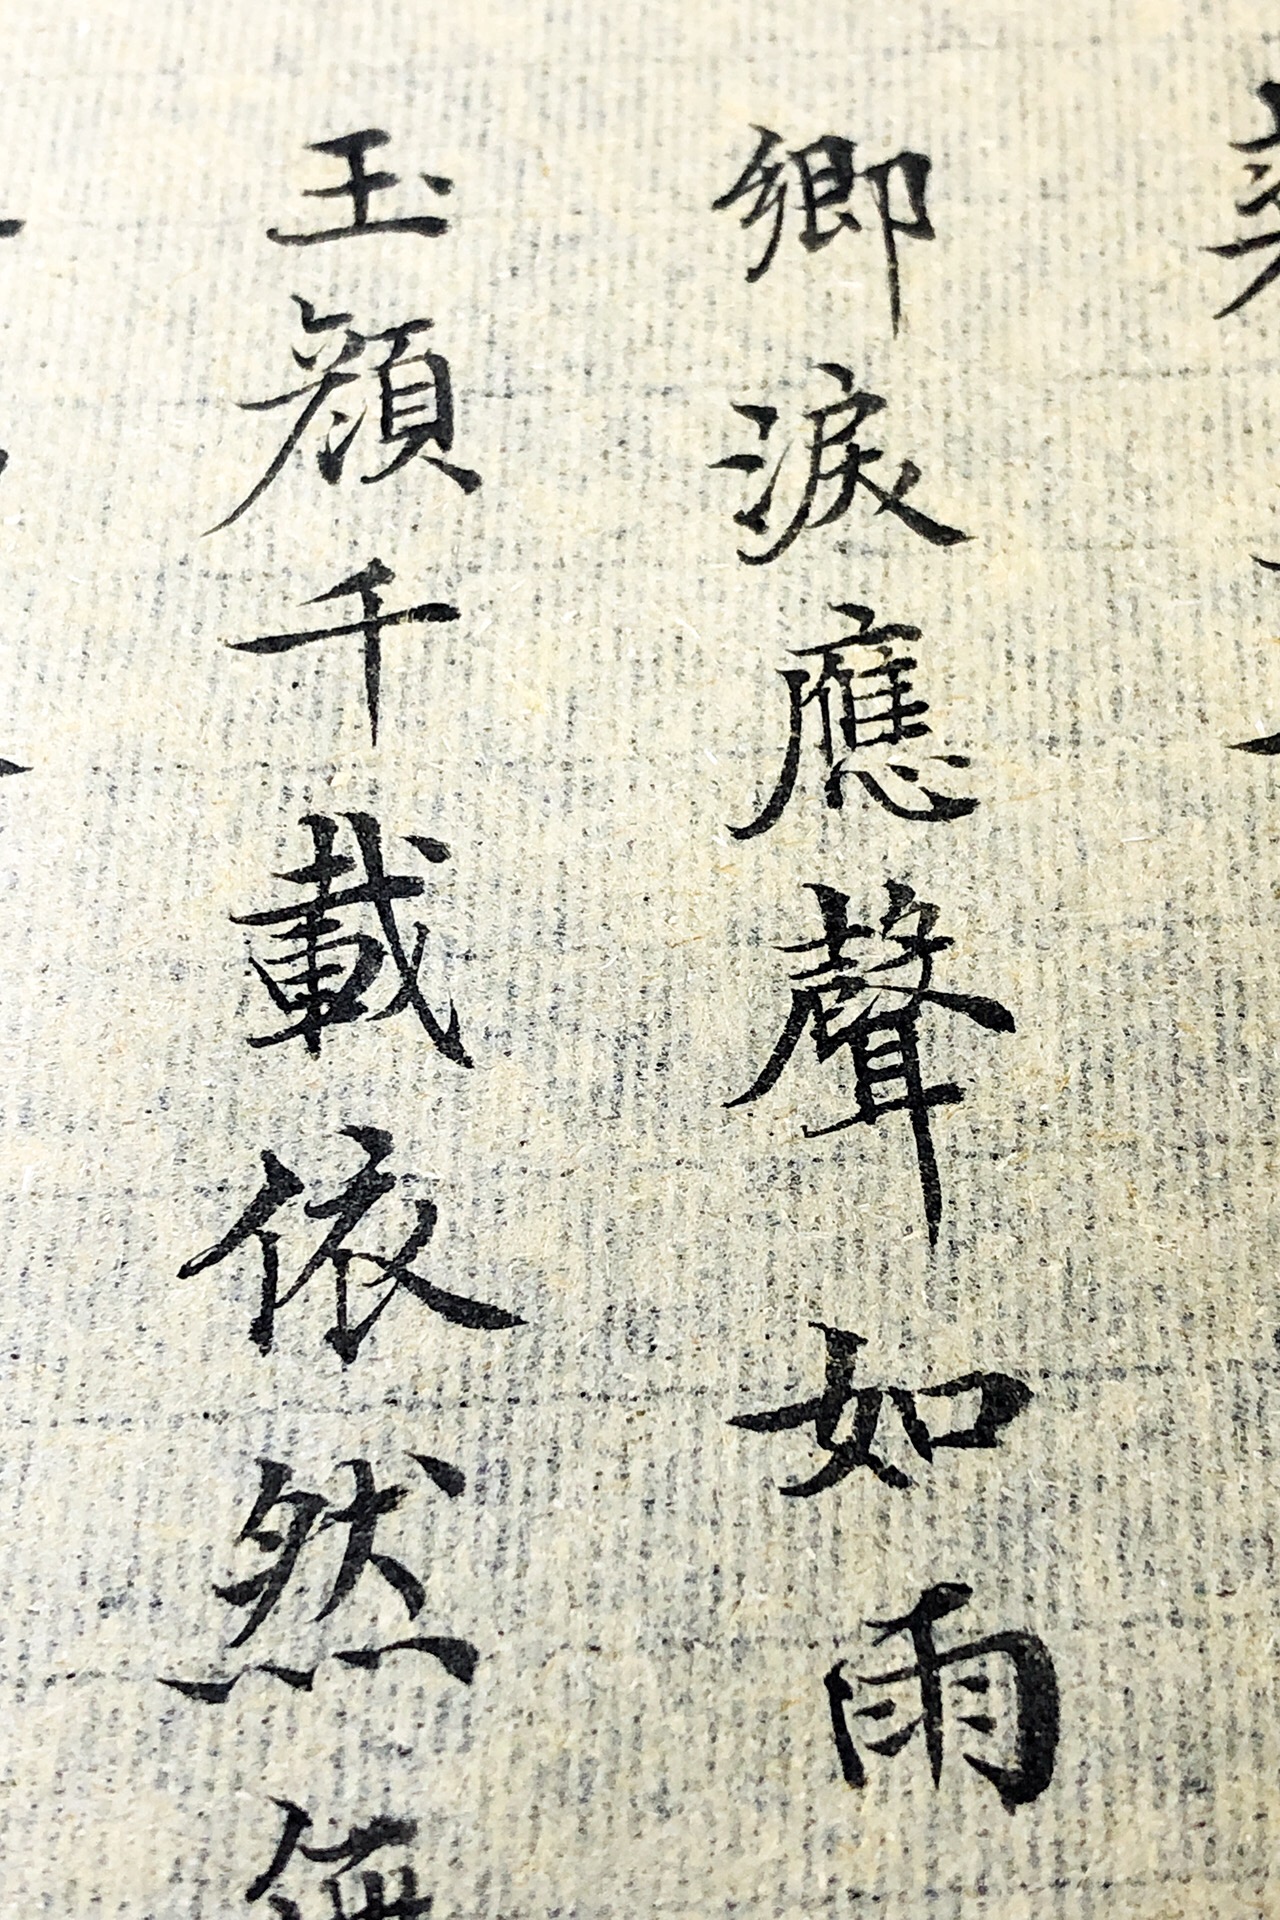 鄉淚應聲如雨
玉顏千載依然無